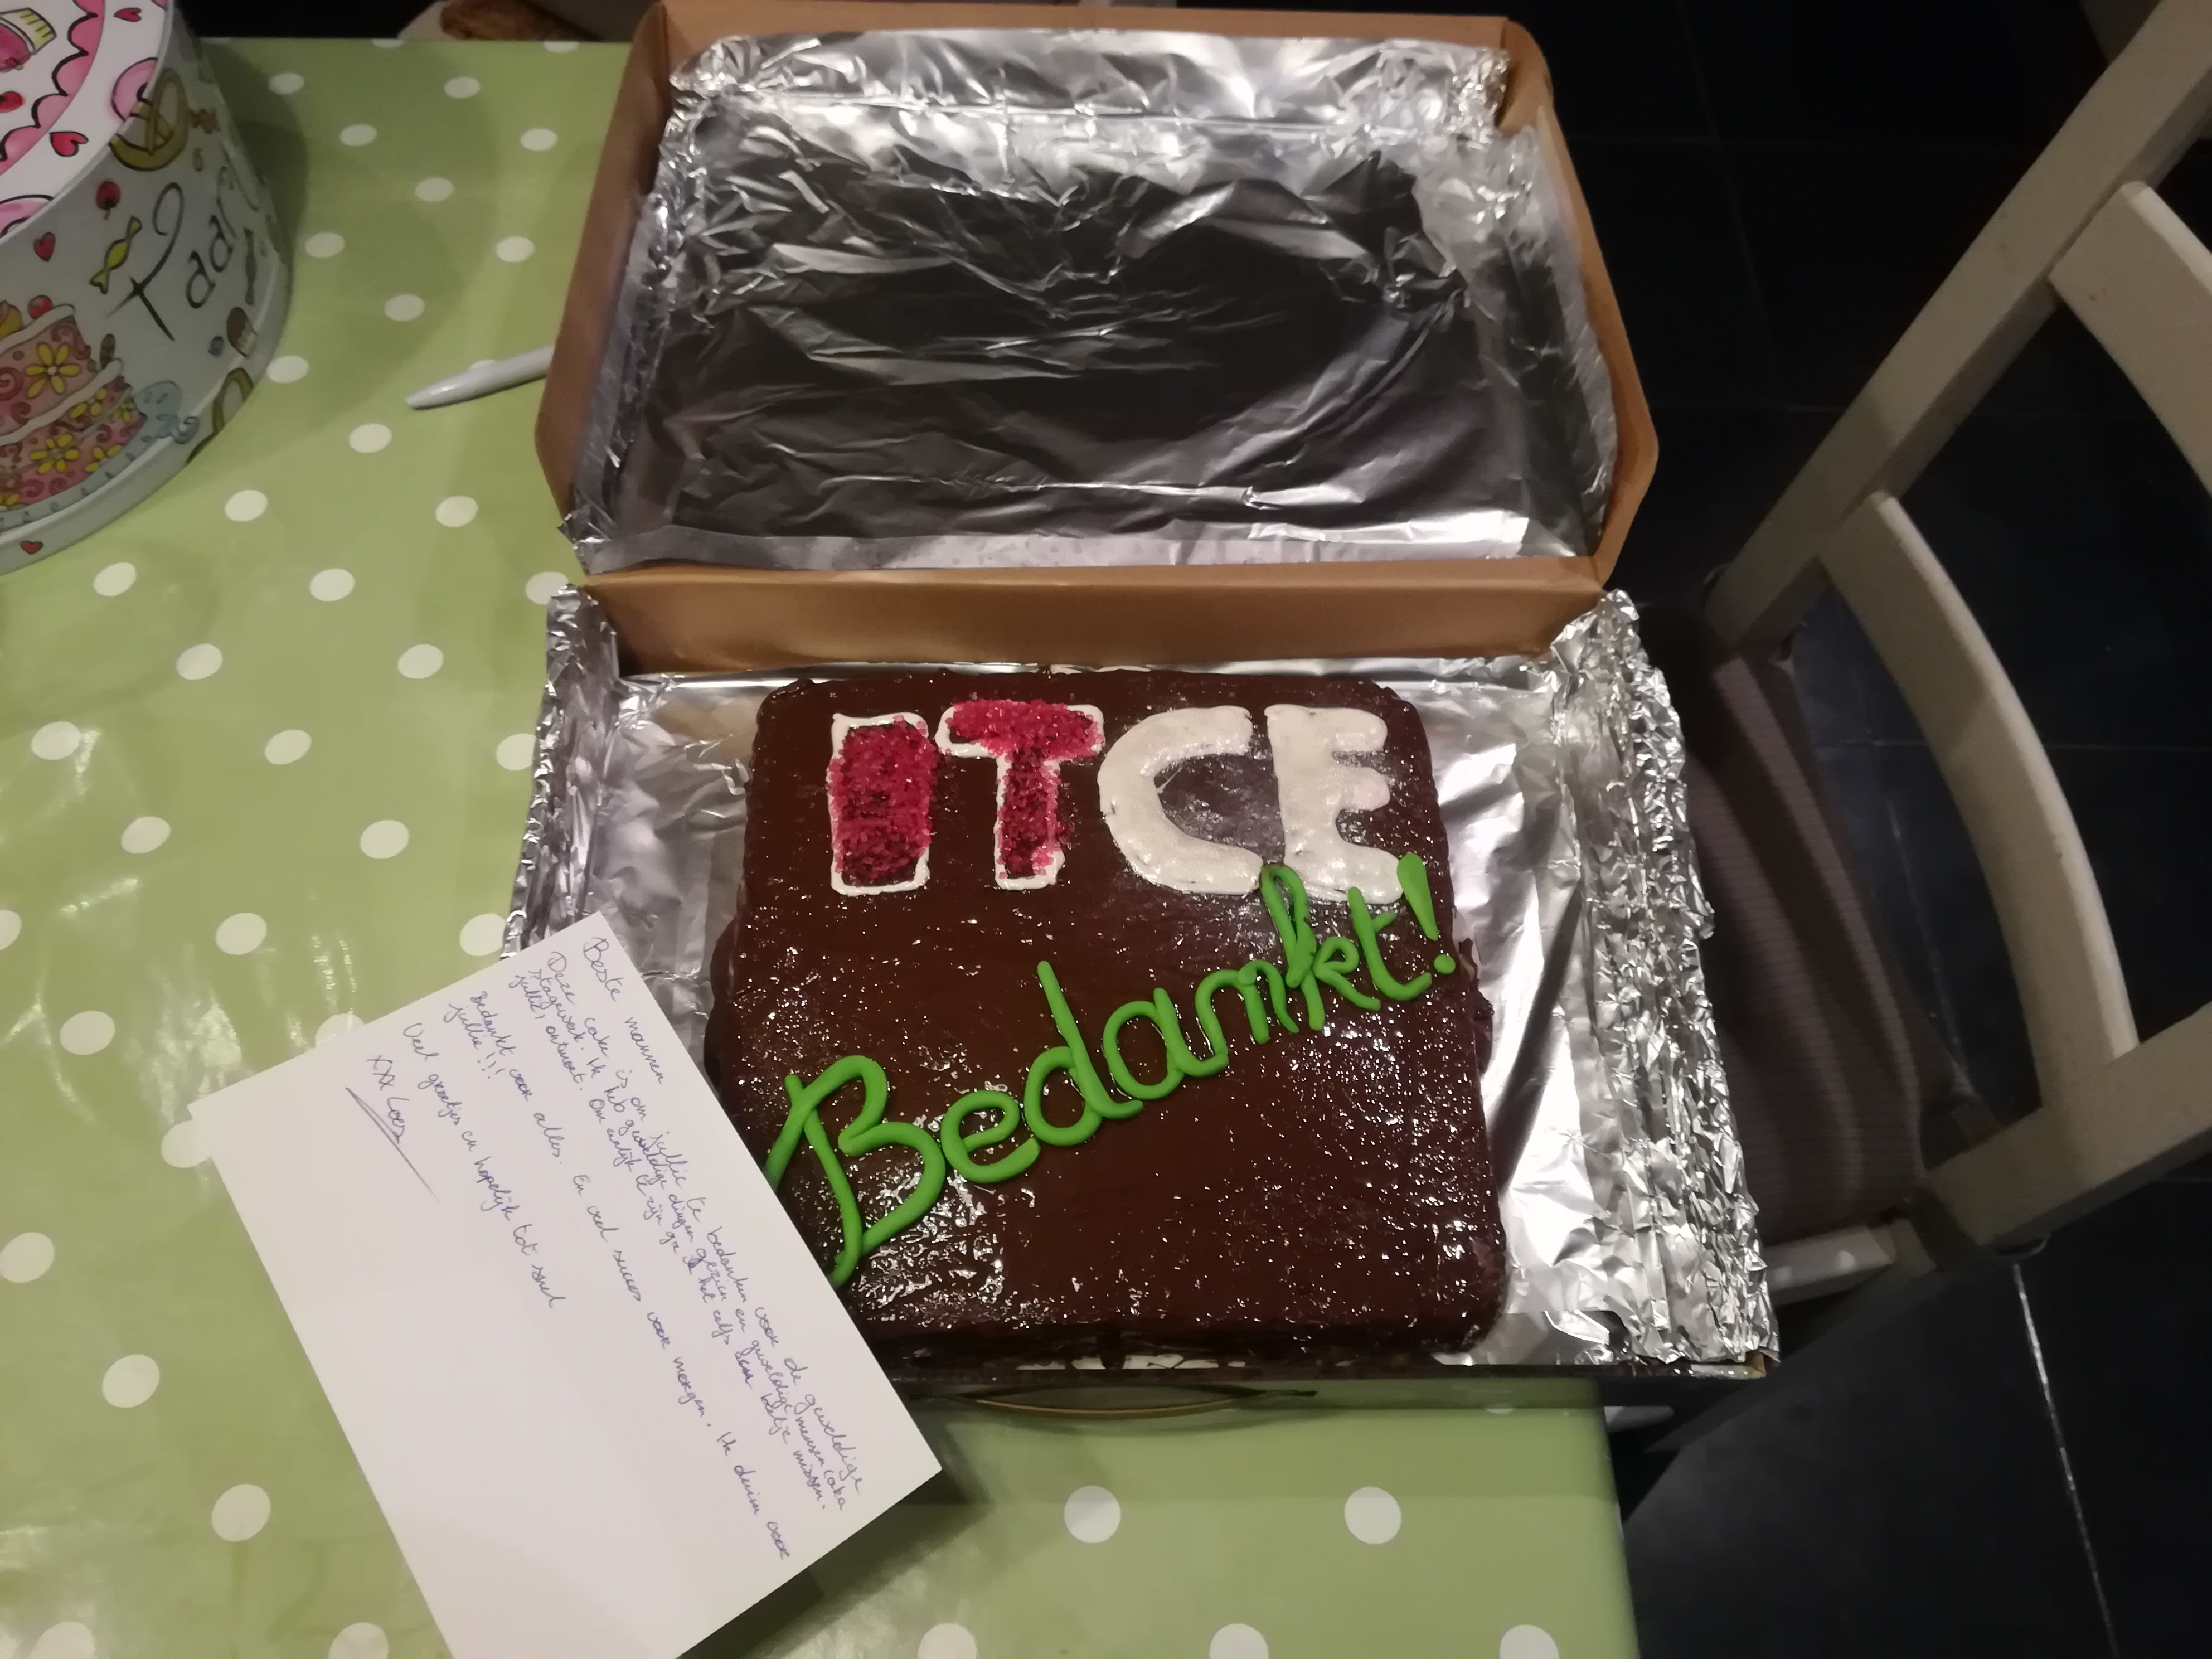 Paar
ITCE
Bedankt!
Beste mannen
Deze cake is om jullie te bedanken voor de geweldige
stageweek. Ik heb geweldige dingen gezien en geweldige mensen (oka
jullie) ontmoet. Om eerlijk te zijn ga ik het zelfs een beetje missen.
Bedankt voor alles. En veel succes voor morgen. Ik duim voor
jullie!!!
Veel groetjes en hopelijk tot snel
xxx Loes